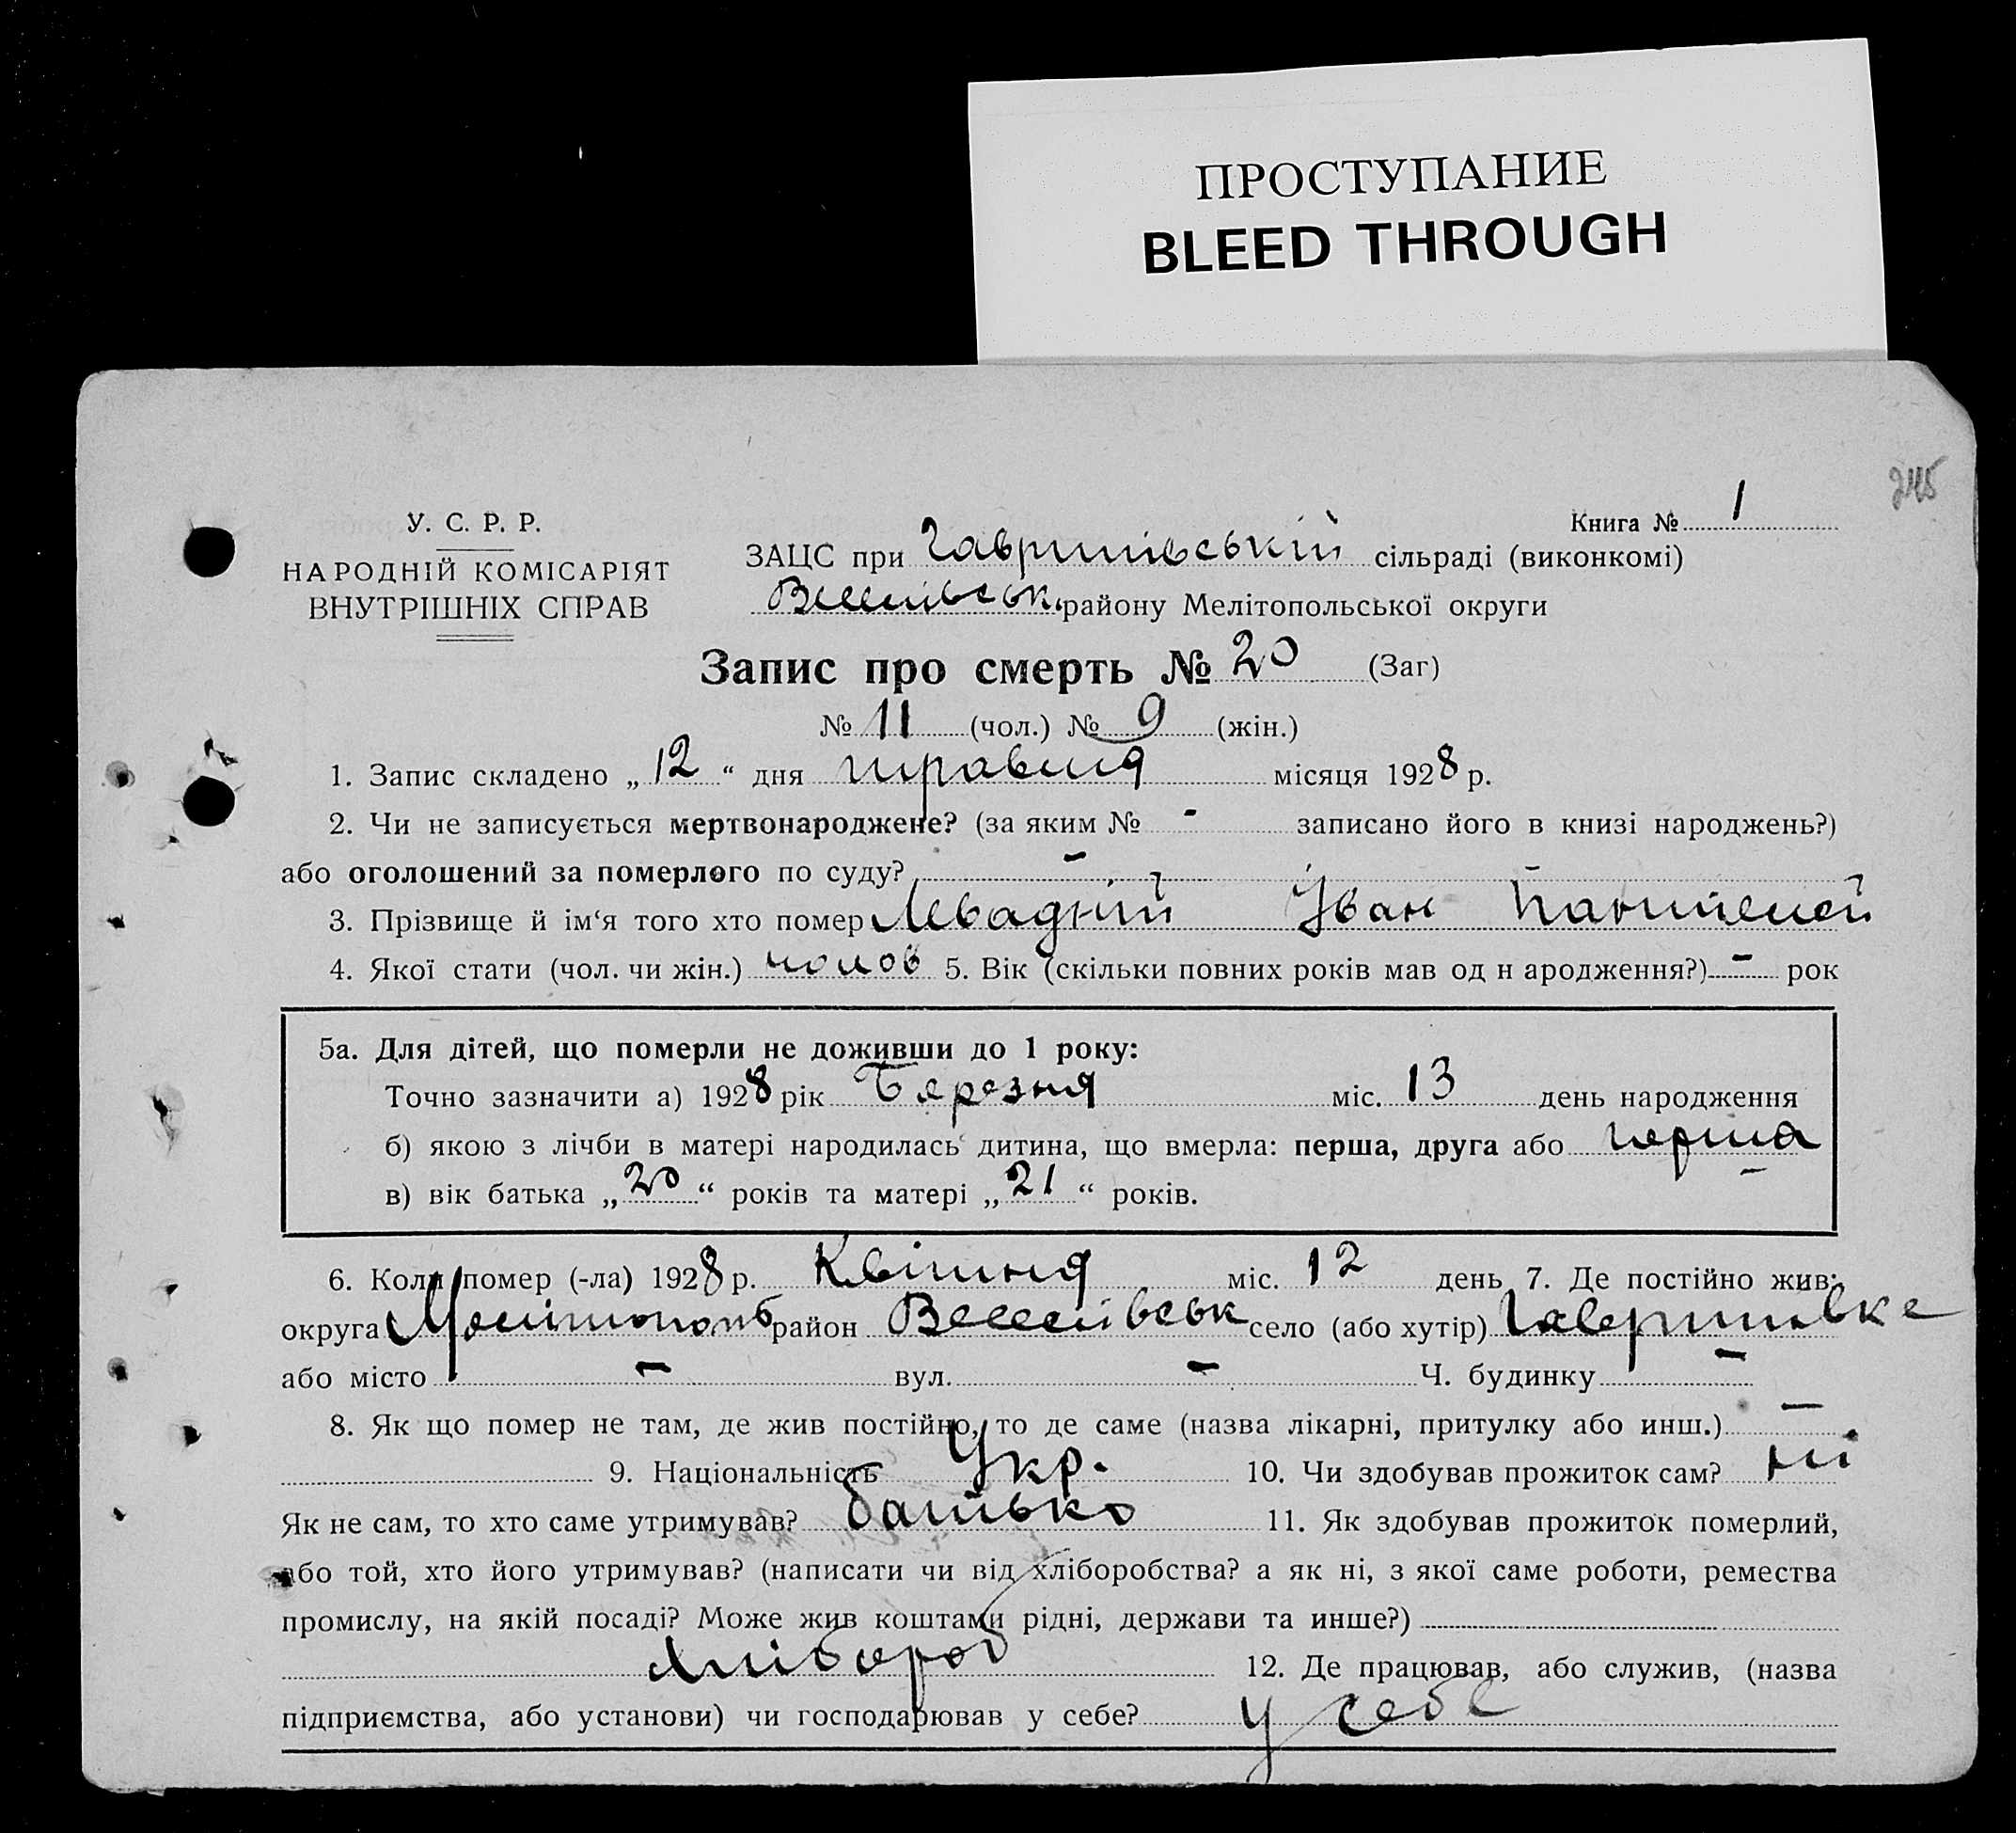 ПРОСТУПАНИЕ
BLEED THROUGH
245
У. С. Р. Р.
НАРОДНІЙ КОМІСАРІЯТ
ВНУТРІШНІХ СПРАВ
Книга № 1
ЗАЦС при Гаврилівській сільраді (виконкомі)
району Мелітопольської округи
Запис про смерть № 20 (Заг)
№ 11 (чол.) № 9 (жін.)
1. Запис складено „12“ дня травня місяця 1928 р.
2. Чи не записується мертвонароджене? (за яким № - записано його в книзі народжень?)
або оголошений за померлого по суду? -
3. Прізвище й ім‘я того хто помер Левадній Іван
4. Якої стати (чол. чи жін.) чолов 5. Вік (скільки повних років мав од н ародження?) - рок
5а. Для дітей, що померли не доживши до 1 року:
Точно зазначити а) 1928 рік Березня міс. 13 день народження
б) якою з лічби в матері народилась дитина, що вмерла: перша, друга або перша
в) вік батька „20“ років та матері „21“ років.
6. Коли помер (-ла) 1928 р. Квітня міс. 12 день 7. Де постійно жив:
округа район село (або хутір)
або місто - вул. - Ч. будинку -
8. Як що помер не там, де жив постійно, то де саме (назва лікарні, притулку або инш.) -
9. Національність Укр. 10. Чи здобував прожиток сам? ні
Як не сам, то хто саме утримував? батько 11. Як здобував прожиток померлий,
або той, хто його утримував? (написати чи від хліборобства? а як ні, з якої саме роботи, ремества
промислу, на якій посаді? Може жив коштами рідні, держави та инше?)
хлібороб 12. Де працював, або служив, (назва
підприємства, або установи) чи господарював у себе? у себе